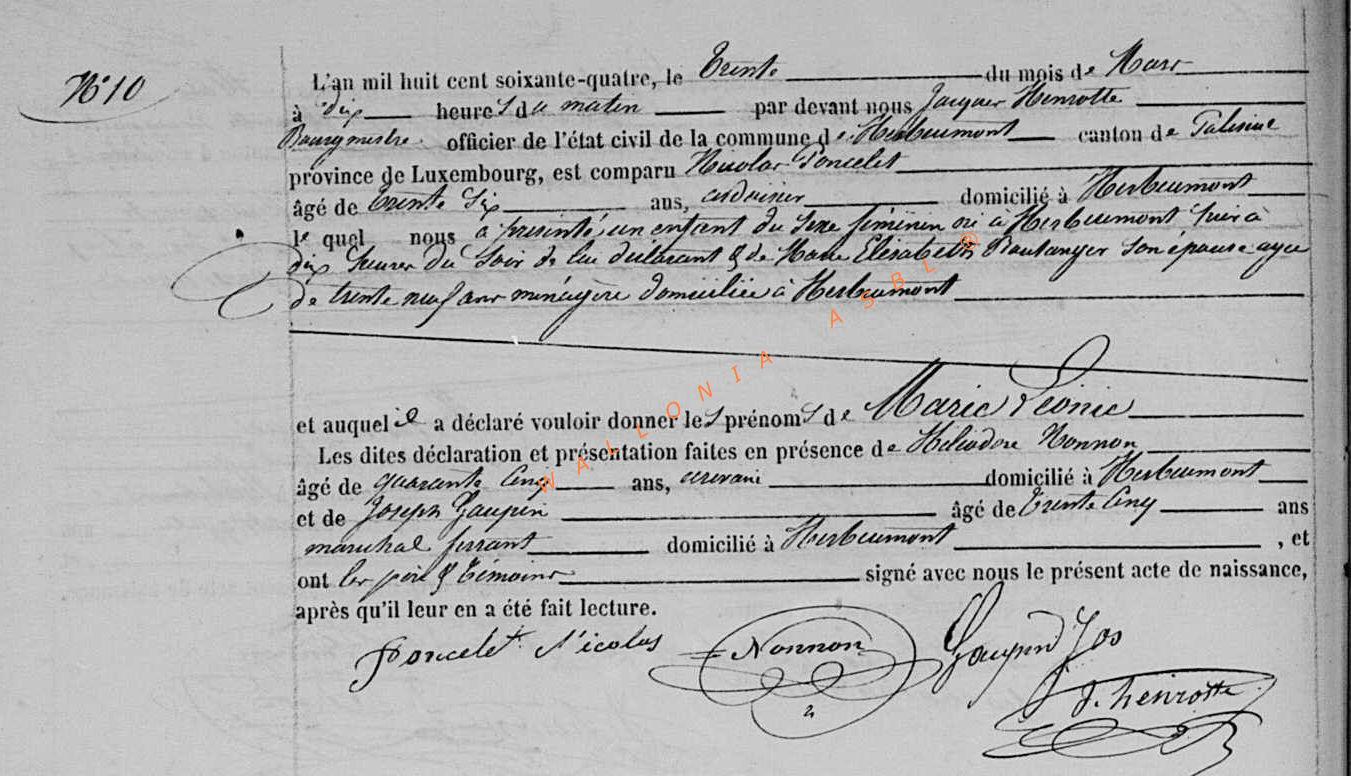 N° 10
L'an mil huit cent soixante-quatre, le trente du mois de Mars
à dix heures du matin par devant nous Jacques Henrotte
Bourgmestre officier de l'état civil de la commune de Herbeumont canton de Paliseul
province de Luxembourg, est comparu Nicolas Poncelet
âgé de trente six ans, ardoisier domicilié à Herbeumont
lequel nous a présenté un enfant du sexe féminin né à Herbeumont hier à
dix heures du soir de lui déclarant & de Marie Elisabeth Boulanger son épouse agée
de trente neuf ans ménagère domiciliée à Herbeumont
et auquel il a déclaré vouloir donner les prénoms de Marie Léonie
Les dites déclaration et présentation faites en présence de Héliodore Nonnon
âgé de quarante cinq ans, domicilié à Herbeumont
et de Joseph Gaupin âgé de trente cinq ans
maréchal ferrant domicilié à Herbeumont , et
ont les père & témoins signé avec nous le présent acte de naissance,
après qu'il leur en a été fait lecture.
Poncelet Nicolas Nonnon Gaupin Jos
J. henrotte
WALLONIA ASBL ®